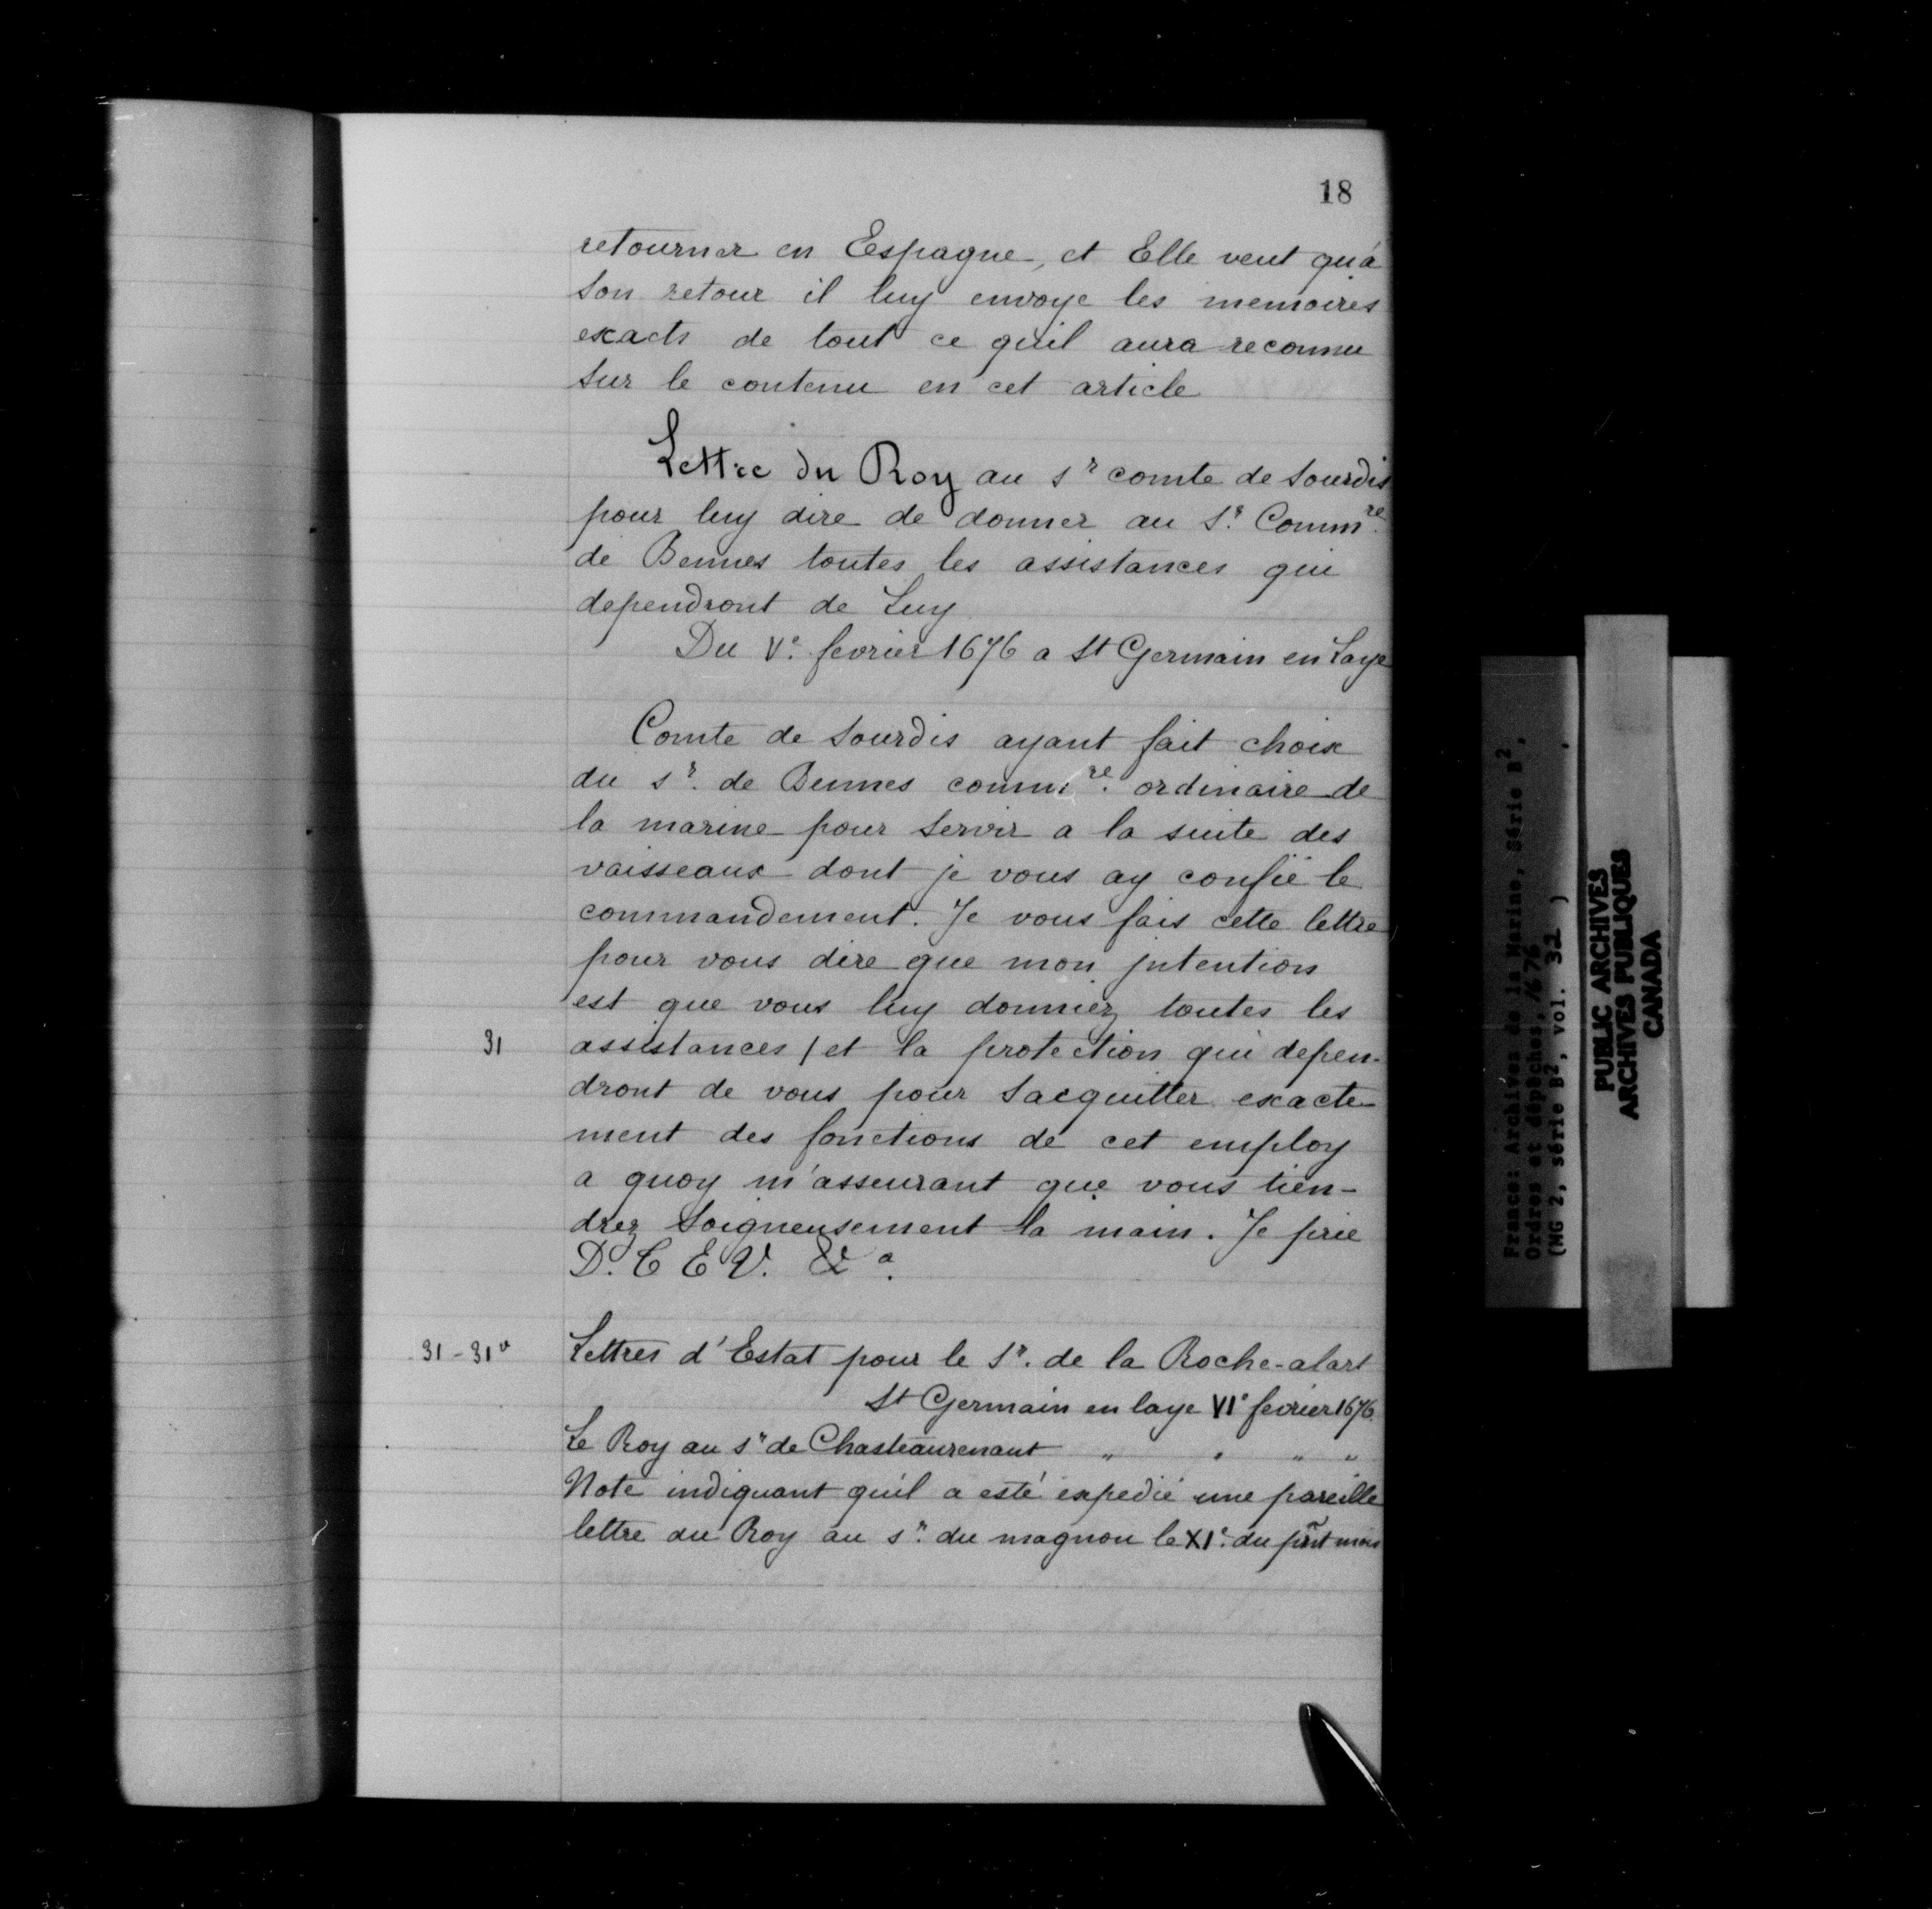 18
retourner en Espagne, et Elle veut qu'á
son retour il luy envoye les memoires
exacts de tout ce qu'il aura reconnu
sur le contenu en cet article
Lettre du Roy au sr comte de Sourdis
pour luy dire de donner au Sr. Commre.
de Bennes toutes les assistances qui
dependront de Luy
Du Ve. fevrier 1676 a St Germain en Laye
Comte de Sourdis ayant fait choix
du sr. de Bennes commre. ordinaire de
la marine pour servir a la suite des
vaisseaux dont je vous ay confié le
commandement. Je vous fais cette lettre
pour vous dire que mon jntention
est que vous luy donniez toutes les
31 assistances / et la protection qui depen-
dront de vous pour sacquitter exacte-
ment des fonctions de cet employ
a quoy m'asseurant que vous tien-
drez soigneusement la main. Je prie
D. C E V. &a.
31-31v Lettres d'Estat pour le Sr. de la Roche-alart
St Germain en laye VIe fevrier 1676.
Le Roy au sr de Chasteaurenaut " " " "
Note indiquant qu'il a esté expedié une pareille
lettre du Roy au sr. du magnou le XIe. du pñt mois
France: Archives de la Marine, Série B2,
Ordres et dépêches, 1676
(MG 2, série B2, vol. 32 )
PUBLIC ARCHIVES
ARCHIVES PUBLIQUES
CANADA